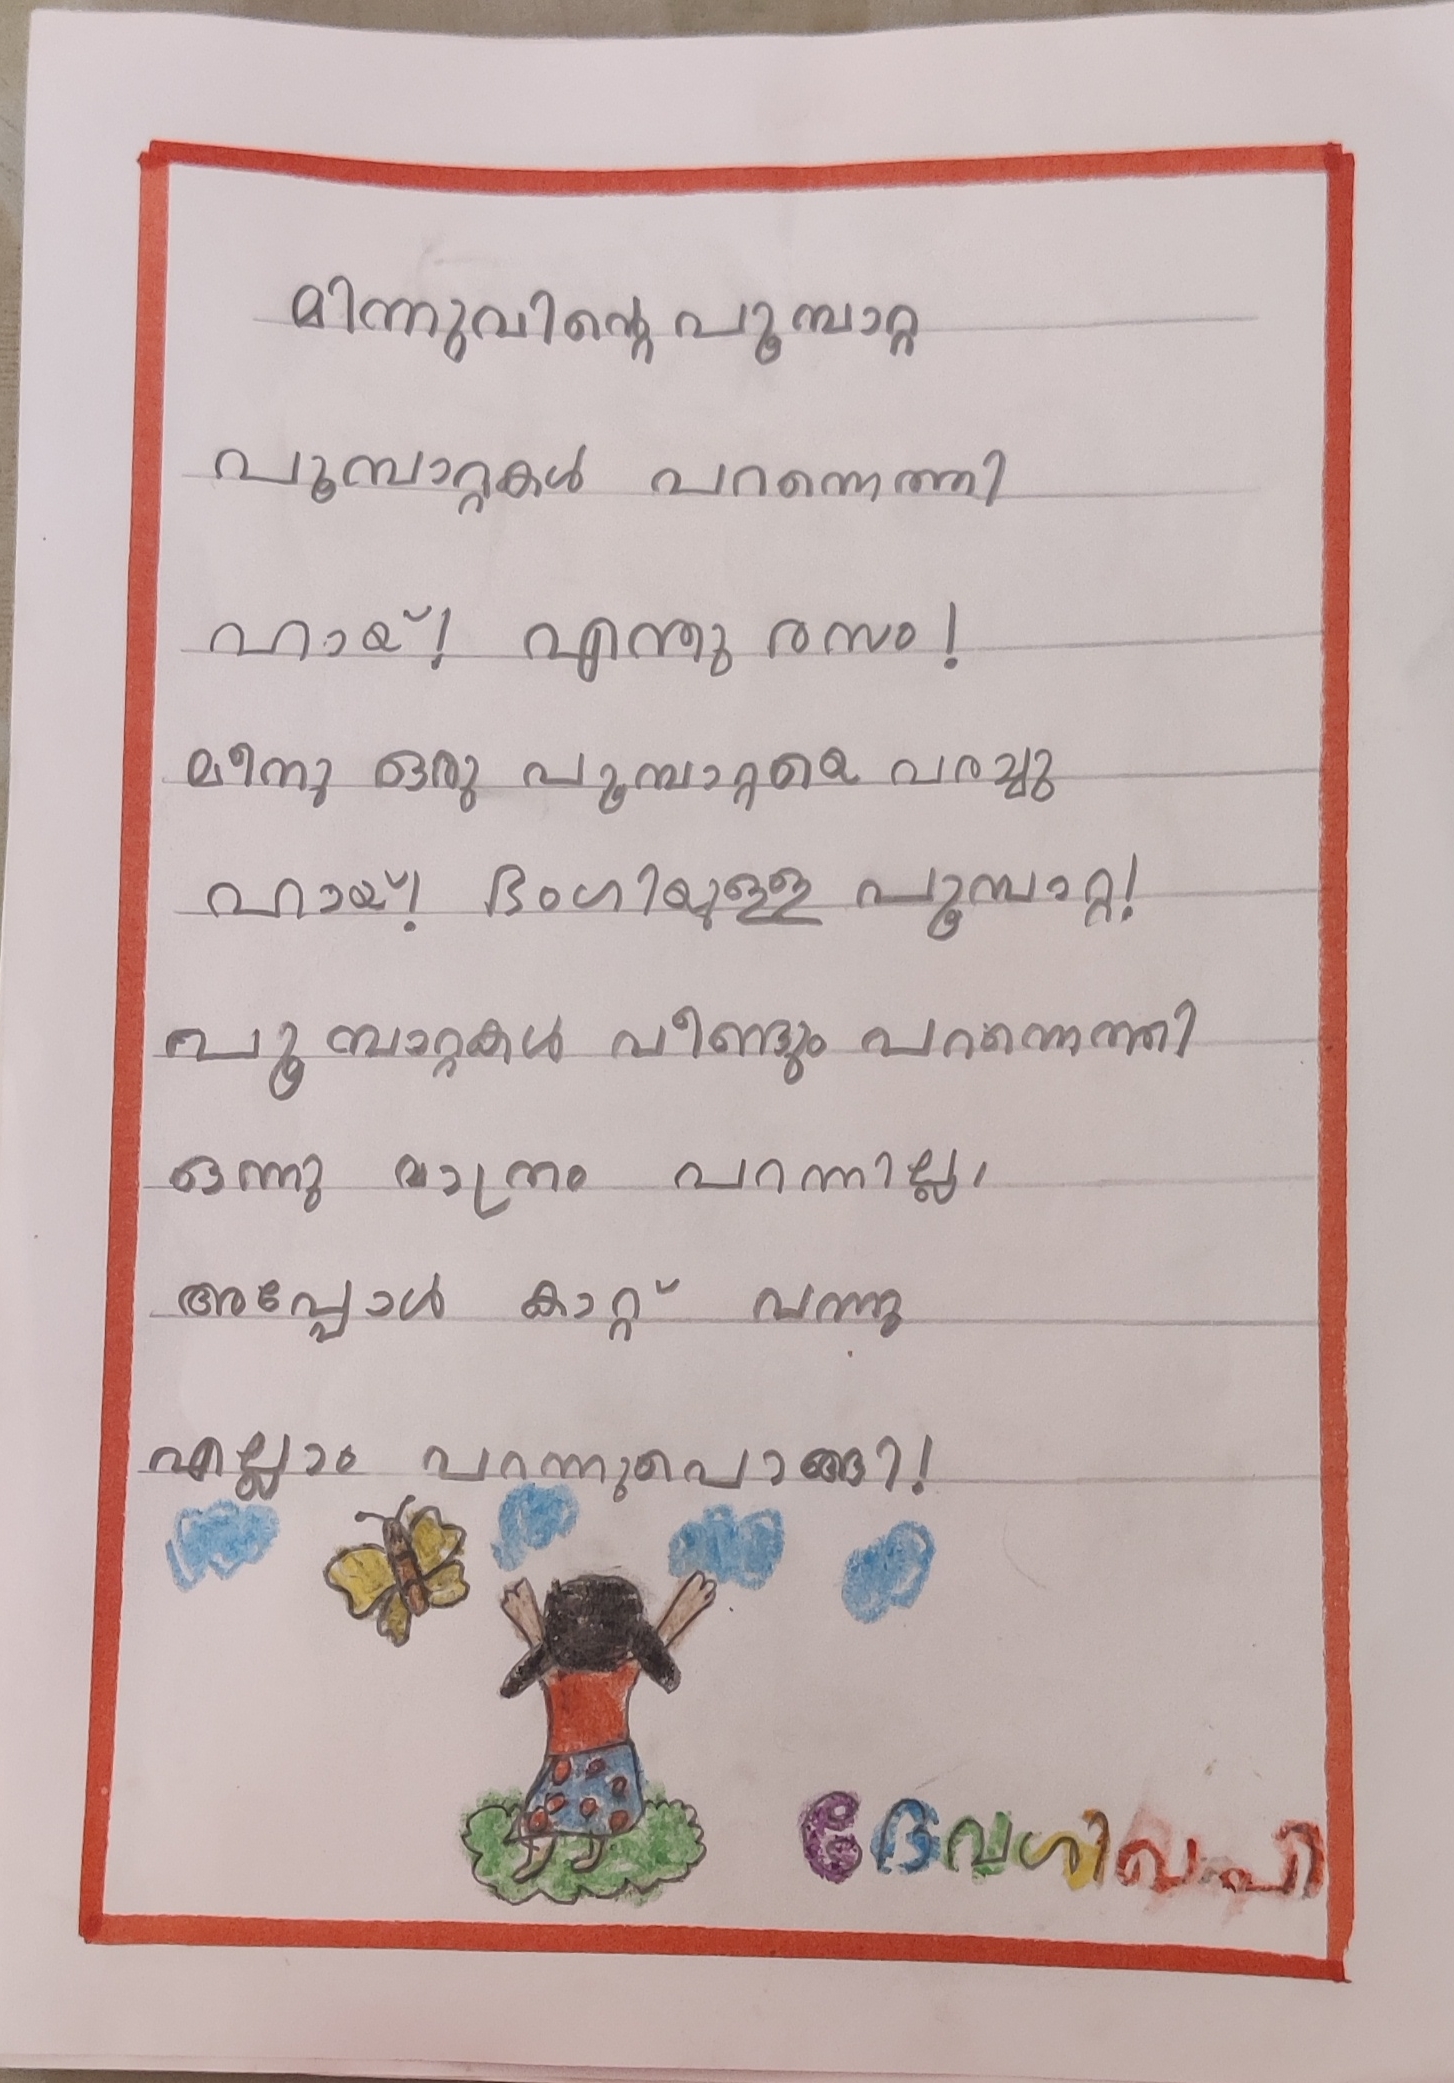 മിന്നുവിന്റെ പൂമ്പാറ്റ
പൂമ്പാറ്റകൾ പറന്നെത്തി
ഹായ്! എന്തു രസം!
മീനു ഒരു പൂമ്പാറ്റയെ വരച്ചു
ഹായ്! ഭംഗിയുള്ള പൂമ്പാറ്റ!
പൂമ്പാറ്റകൾ വീണ്ടും പറന്നെത്തി
ഒന്നു മാത്രം പറന്നില്ല.
അപ്പോൾ കാറ്റ് വന്നു
എല്ലാം പറന്നുപൊങ്ങി!